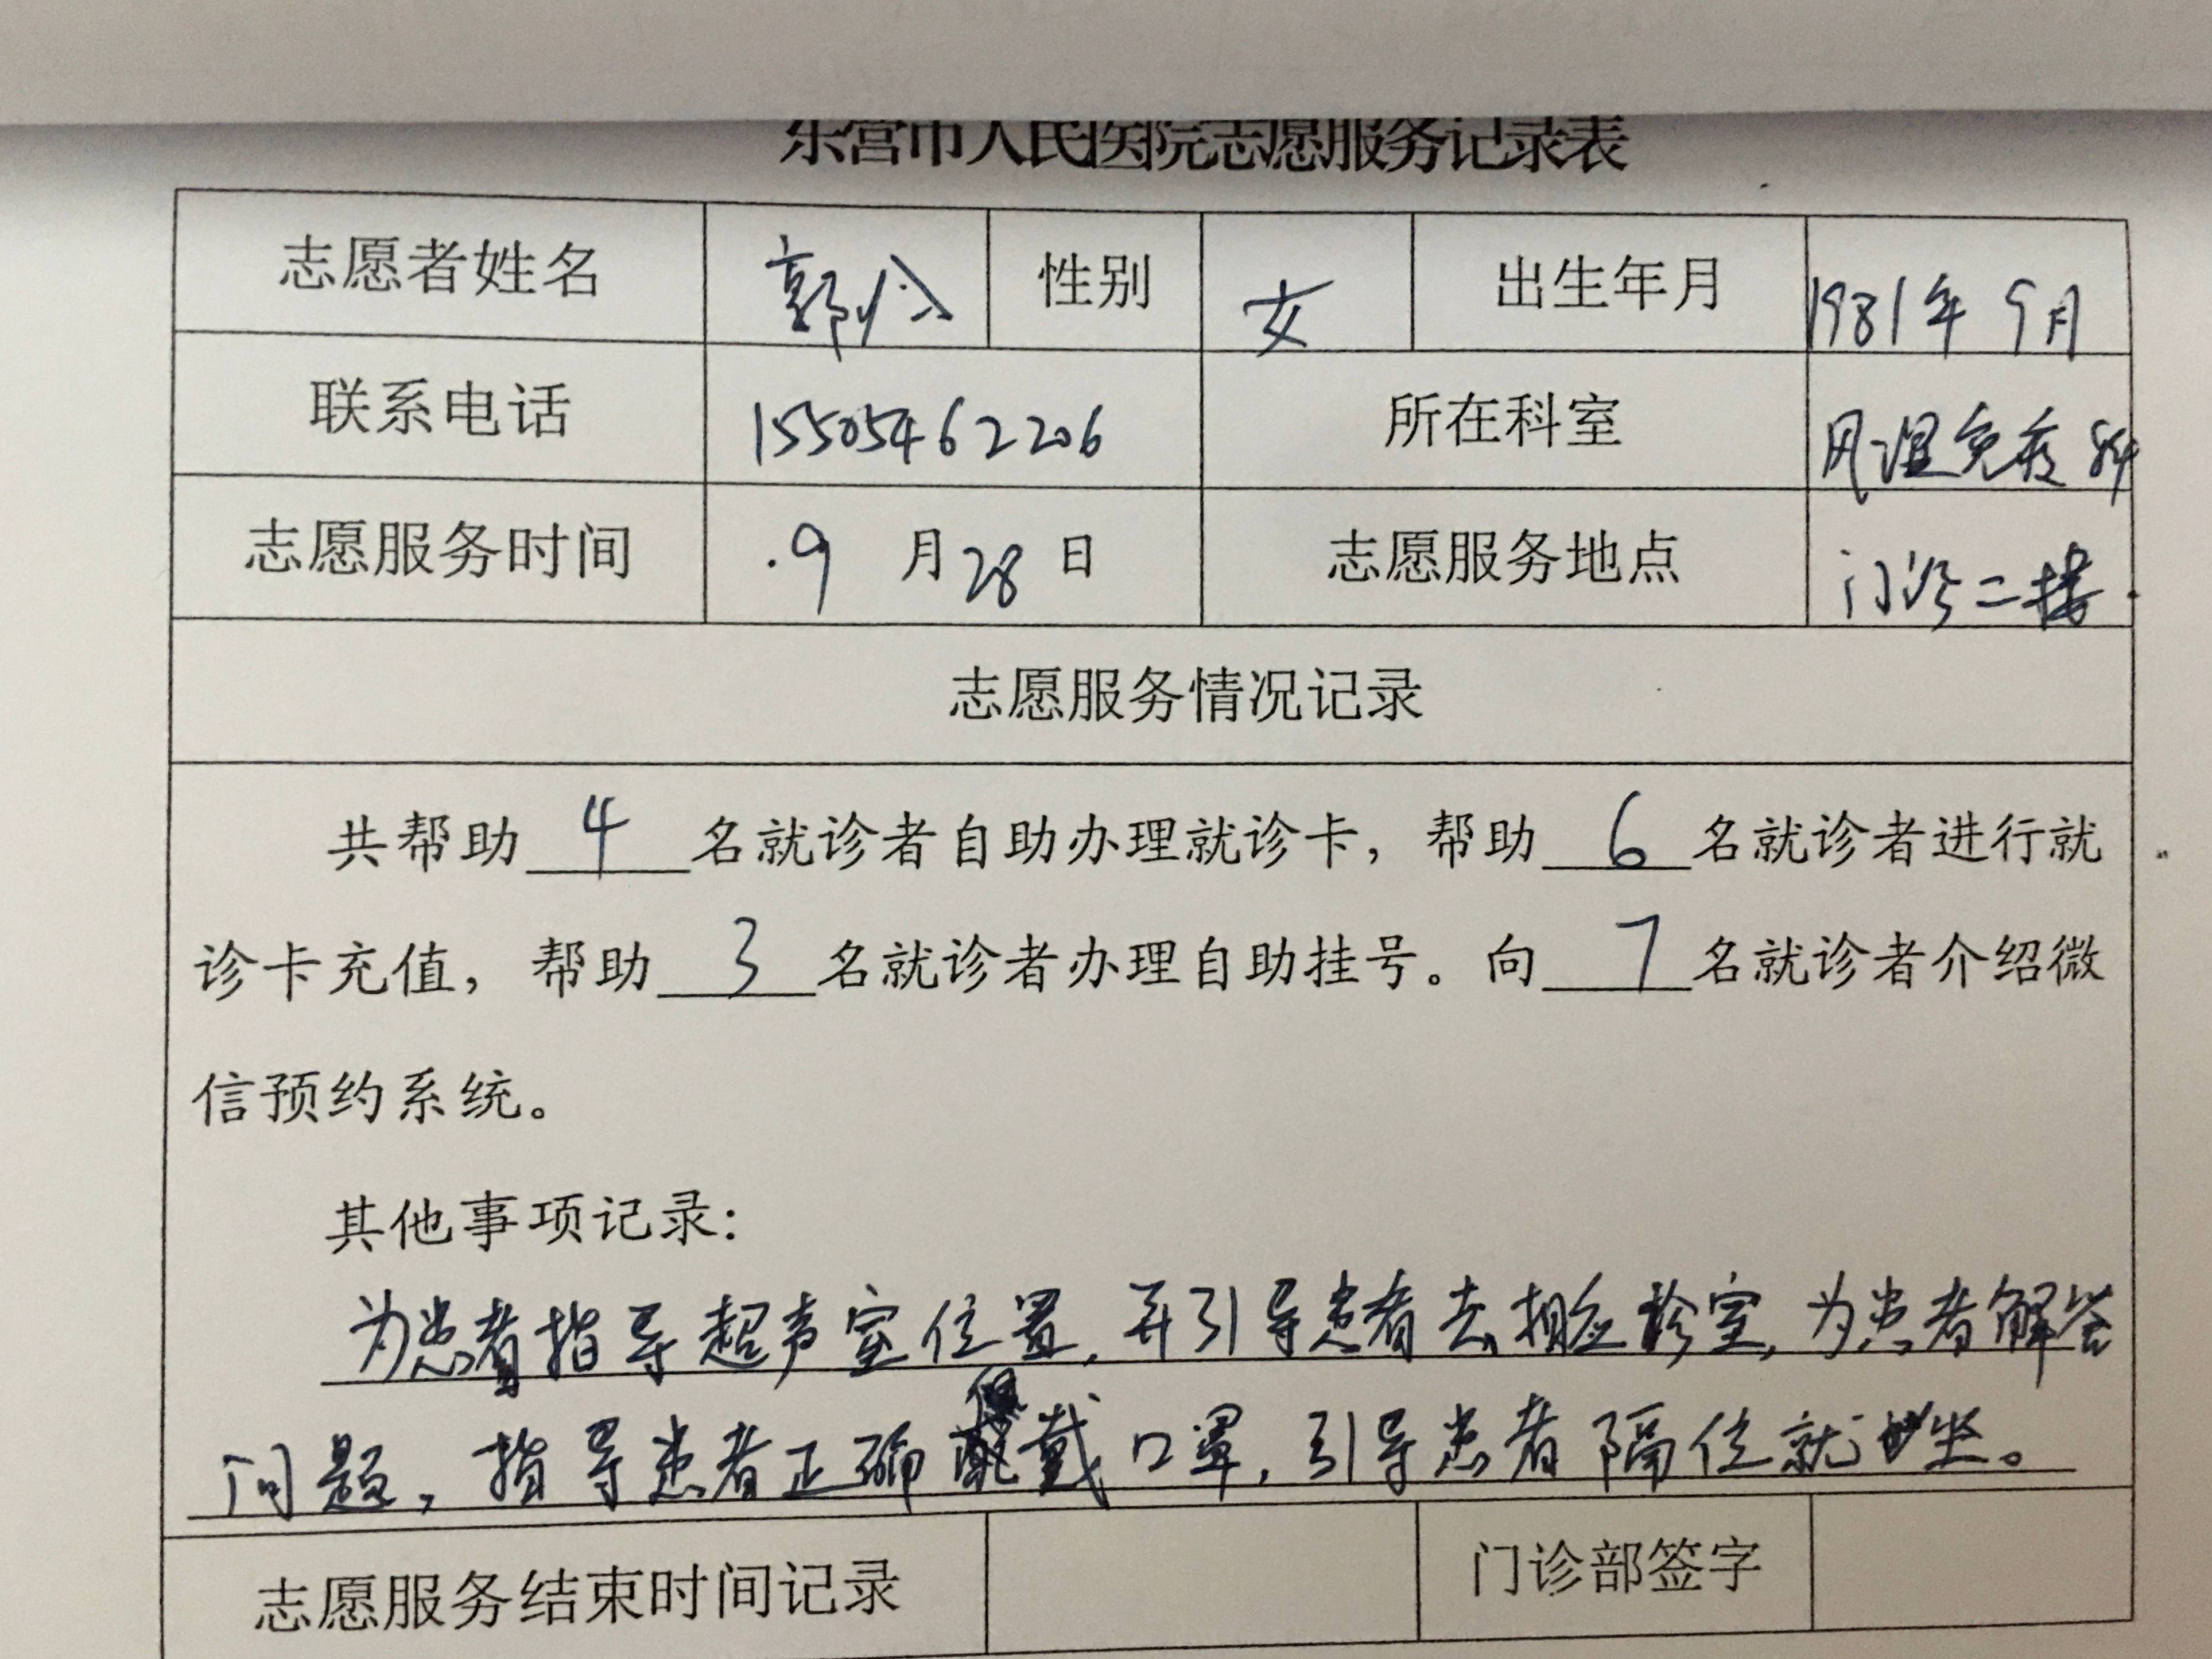 东营市人民医院志愿服务记录表
志愿者姓名 郭 性别 女 出生年月 1981年9月
联系电话 15505462206 所在科室 风湿免疫科
志愿服务时间 9月28日 志愿服务地点 门诊二楼
志愿服务情况记录
共帮助 4 名就诊者自助办理就诊卡，帮助 6 名就诊者进行就
诊卡充值，帮助 3 名就诊者办理自助挂号。向 7 名就诊者介绍微
信预约系统。
其他事项记录：
为患者指导超声室位置，并引导患者去相应诊室，为患者解答
问题，指导患者正确佩戴口罩，引导患者隔位就坐。
志愿服务结束时间记录 门诊部签字